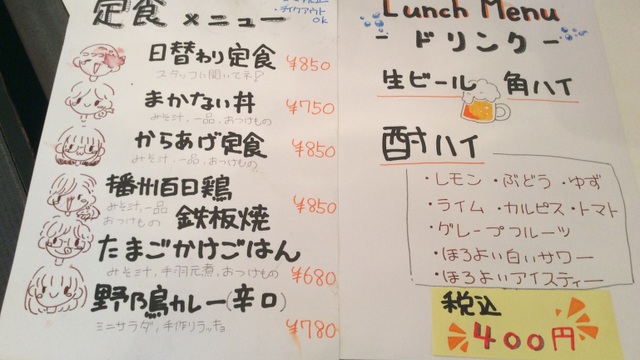 定食メニュー
テイクアウト
OK
日替わり定食
スタッフに聞いてネ!
¥850
まかない丼
みそ汁、一品、おつけもの
¥750
からあげ定食
みそ汁、一品、おつけもの
¥850
播州百日鶏
みそ汁、一品
おつけもの
鉄板焼
¥850
たまごかけごはん
みそ汁、手羽元煮、おつけもの
¥680
野乃鳥カレー(辛口)
ミニサラダ、手作りラッキョ
¥780
Lunch Menu
-ドリンク-
生ビール 角ハイ
酎ハイ
・レモン ・ぶどう ・ゆず
・ライム ・カルピス ・トマト
・グレープフルーツ
・ほろよい白いサワー
・ほろよいアイスティー
税込
400円